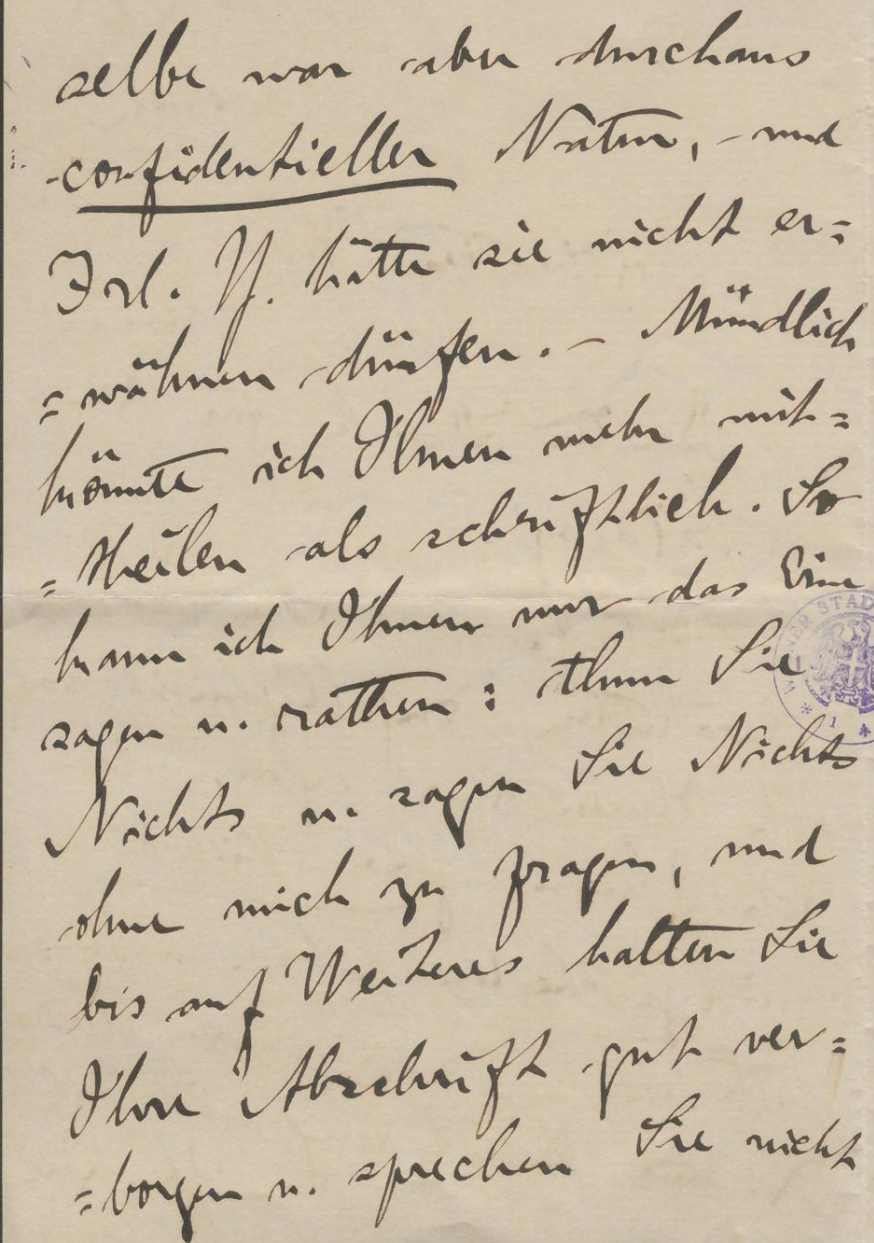 selbe war aber durchaus
confidentieller Natur, – und
Frl. Y. hätte sie nicht er=
=wähnen dürfen. – Mündlich
könnte ich Ihnen mehr mit=
=theilen als schriftlich. So
kann ich Ihnen nur das Eine
sagen u. rathen : thun Sie
Nichts u. sagen Sie Nichts
ohne mich zu fragen, und
bis auf Weiteres halten Sie
Ihre Abschrift gut ver=
=borgen u. sprechen Sie nicht